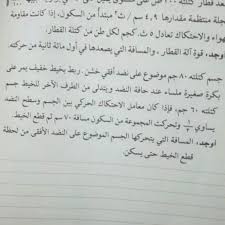 قطار كتلته
عجلة منتظمة مقدارها ٤,٩ سم / ث٢ مبتدئاً من السكون، إذا كانت مقاومة
الهواء والاحتكاك تعادل ٥ ث.كجم لكل طن من كتلة القطار،
أوجد، قوة آلة القطار، والمسافة التي يصعدها في أول مائة ثانية من حركته.
جسم كتلته ٨٠ جم موضوع على نضد أفقي خشن، ربط بخيط خفيف يمر على
بكرة صغيرة ملساء عند حافة النضد ويتدلى من الطرف الآخر للخيط جسم
كتلته ٦٠ جم، فإذا كان معامل الاحتكاك الحركي بين الجسم وسطح النضد
يساوي وتحركت المجموعة من السكون مسافة ٧٠ سم ثم قطع الخيط
أوجد، المسافة التي يتحركها الجسم الموضوع على النضد الأفقي من لحظة
قطع الخيط حتى يسكن.